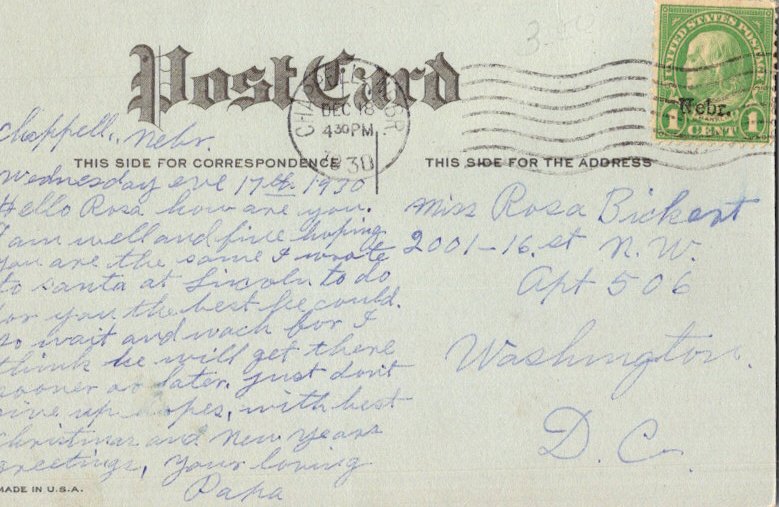 Post Card
CHAPPELL NEBR.
DEC 18
430 PM
1930
UNITED STATES POSTAGE
Nebr.
1 CENT 1
Chappell, Nebr.
THIS SIDE FOR CORRESPONDENCE
THIS SIDE FOR THE ADDRESS
Wednesday eve 17th 1930
Hello Rosa how are you.
I am well and fine hoping
you are the same I wrote
to santa at Lincoln to do
for you the best he could.
so wait and wach for I
think he will get there
sooner or later. just dont
give up hopes, with best
Christmas and New Years
greetings, your loving
Papa
MADE IN U.S.A.
Miss Rosa Bickert
2001-16. st N.W.
Apt 506
Washington.
D. C.